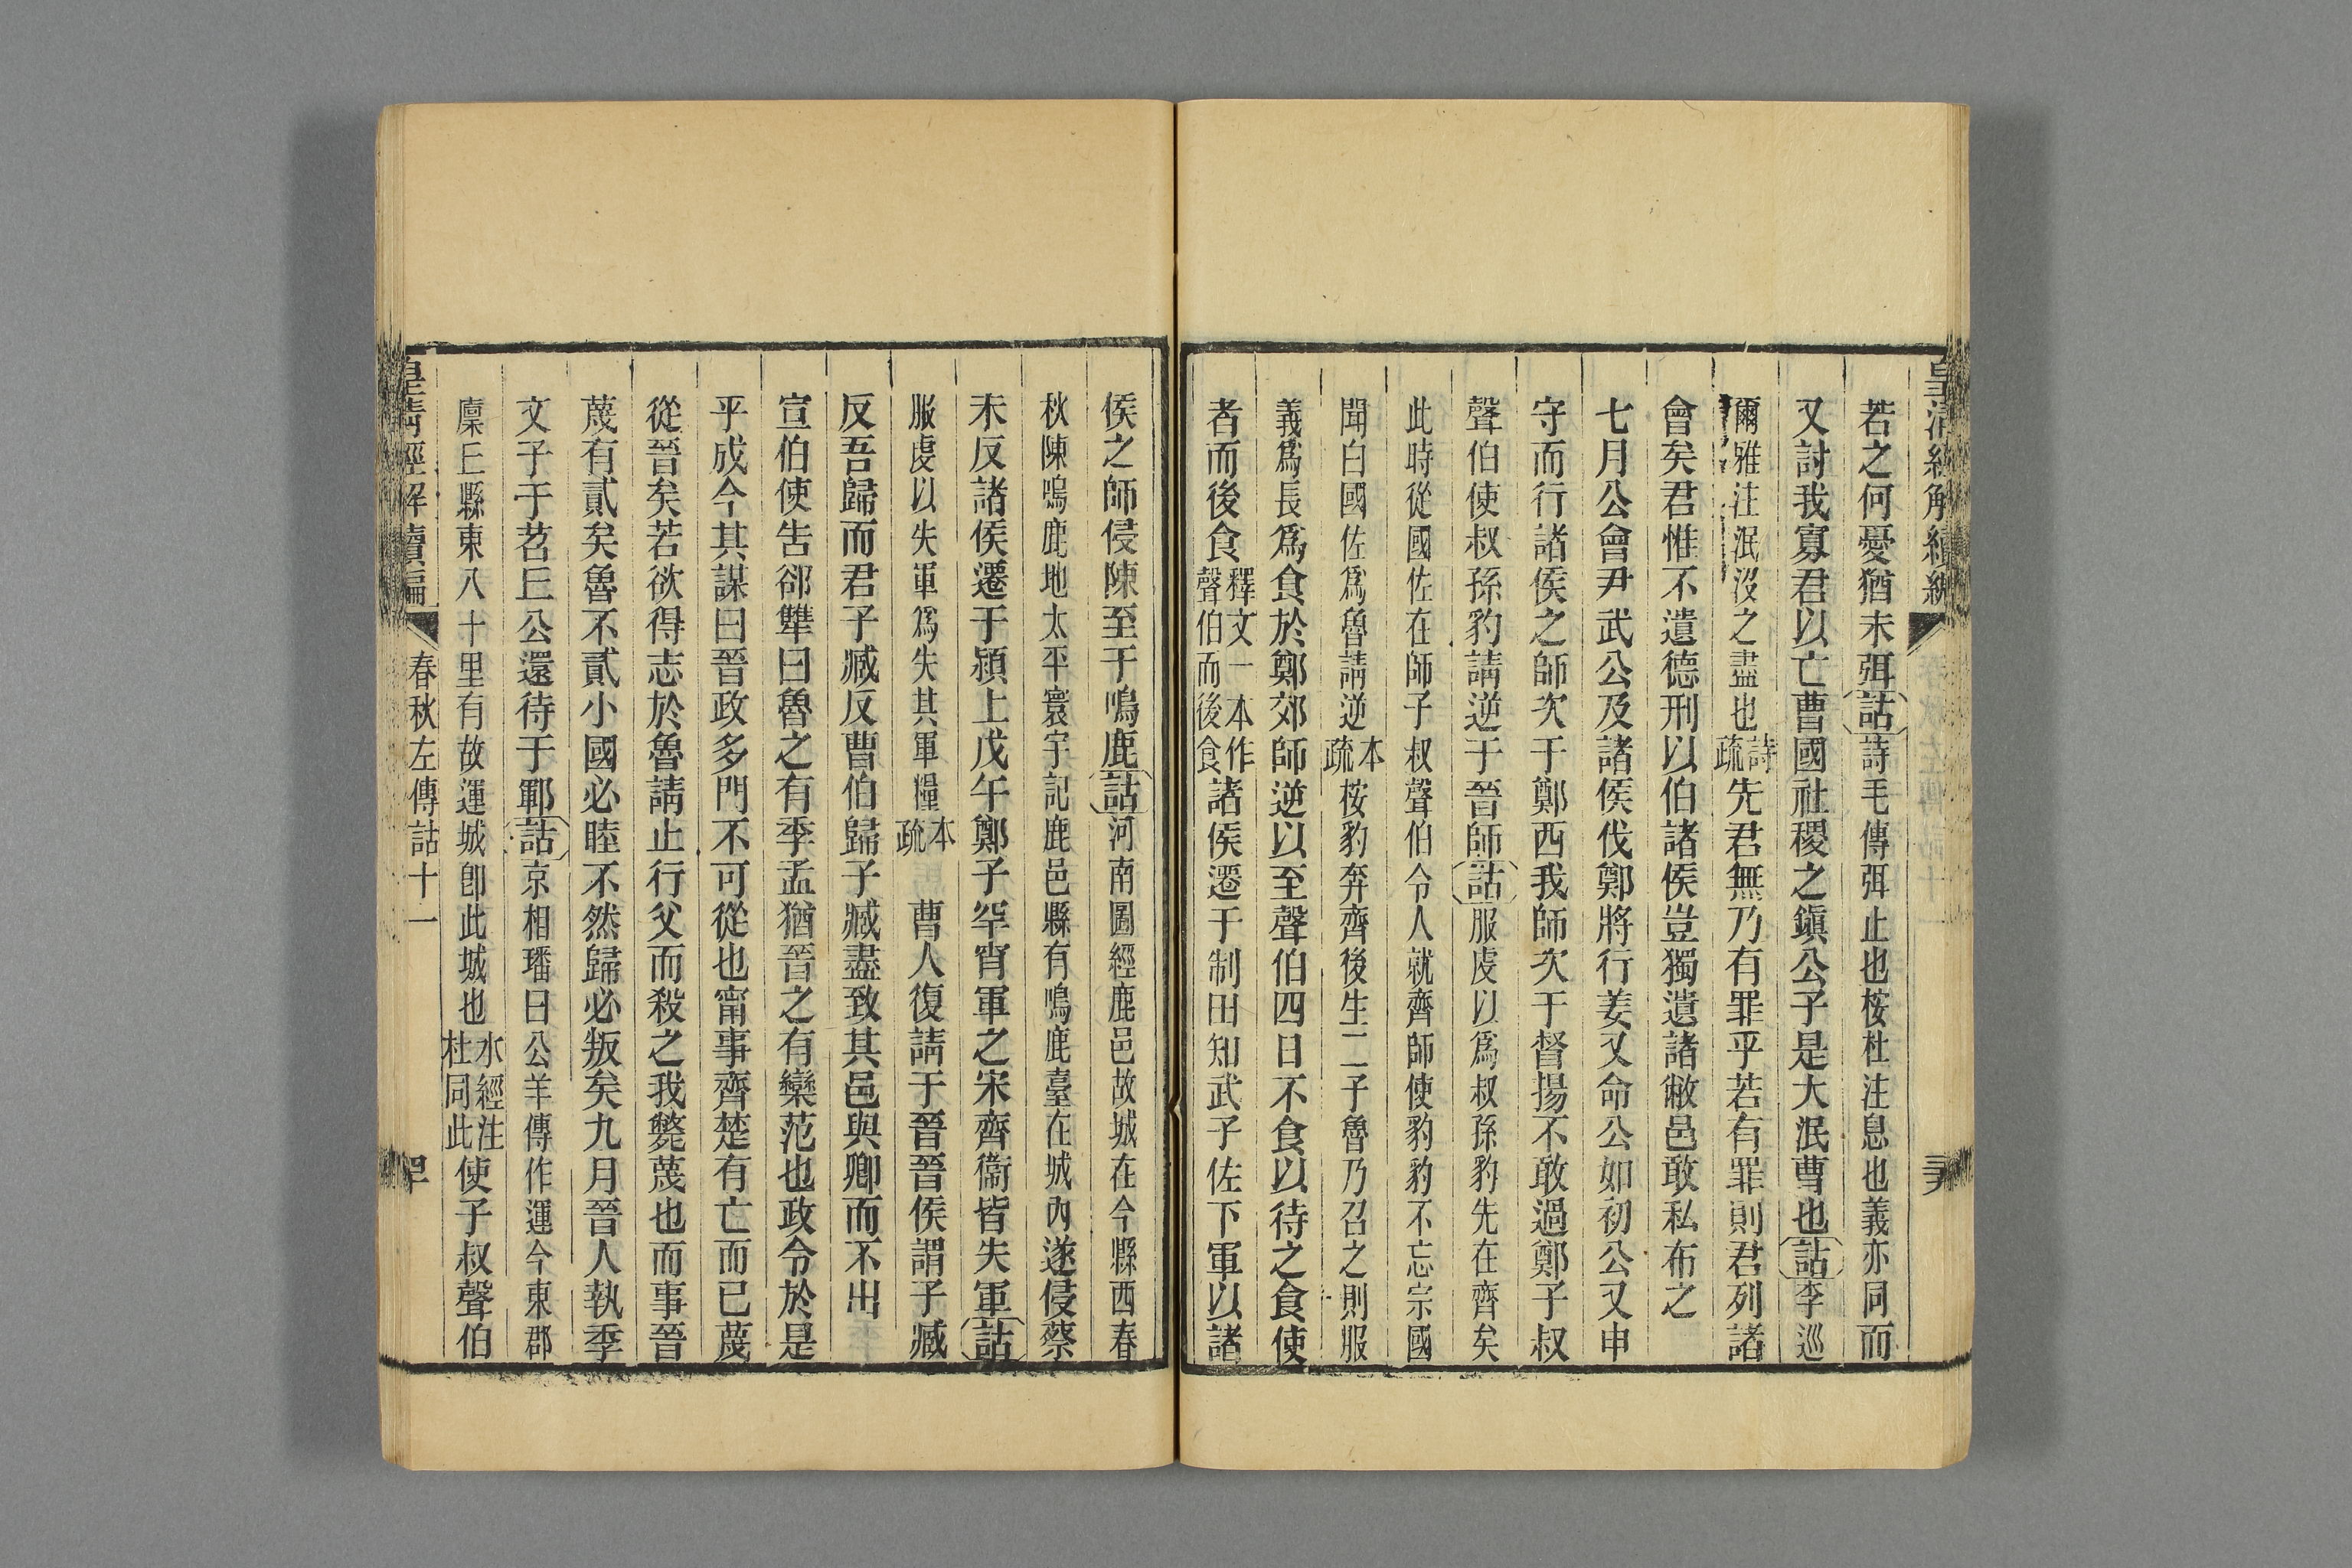 若之何憂猶未弭詁詩毛傳弭止也桉杜注息也義亦同而
又討我寡君以亡曹國社稷之鎭公子是大泯曹也詁李巡
爾雅注泯沒之盡也詩疏先君無乃有罪乎若有罪則君列諸
會矣君惟不遺德刑以伯諸侯豈獨遺諸敝邑敢私布之
七月公會尹武公及諸侯伐鄭將行姜又命公如初公又申
守而行諸侯之師次于鄭西我師次于督揚不敢過鄭子叔
聲伯使叔孫豹請逆于晉師詁服虔以爲叔孫豹先在齊矣
此時從國佐在師子叔聲伯令人就齊師使豹豹不忘宗國
聞白國佐爲魯請逆本疏桉豹奔齊後生二子魯乃召之則服
義爲長爲食於鄭郊師逆以至聲伯四日不食以待之食使
者而後食釋文一本作聲伯而後食諸侯遷于制田知武子佐下軍以諸
侯之師侵陳至于鳴鹿詁河南圖經鹿邑故城在今縣西春
秋陳鳴鹿地太平寰宇記鹿邑縣有鳴鹿臺在城內遂侵蔡
未反諸侯遷于潁上戊午鄭子罕宵軍之宋齊衞皆失軍詁
服虔以失軍爲失其軍糧本疏曹人復請于晉晉侯謂子臧
反吾歸而君子臧反曹伯歸子臧盡致其邑與卿而不出
宣伯使吿郤犨曰魯之有季孟猶晉之有欒范也政令於是
乎成今其謀曰晉政多門不可從也甯事齊楚有亡而已蔑
從晉矣若欲得志於魯請止行父而殺之我斃蔑也而事晉
蔑有貳矣魯不貳小國必睦不然歸必叛矣九月晉人執季
文子于苕丘公還待于鄆詁京相璠曰公羊傳作運今東郡
廩丘縣東八十里有故運城卽此城也水經注杜同此使子叔聲伯
皇清經解續編
春秋左傳詁十一